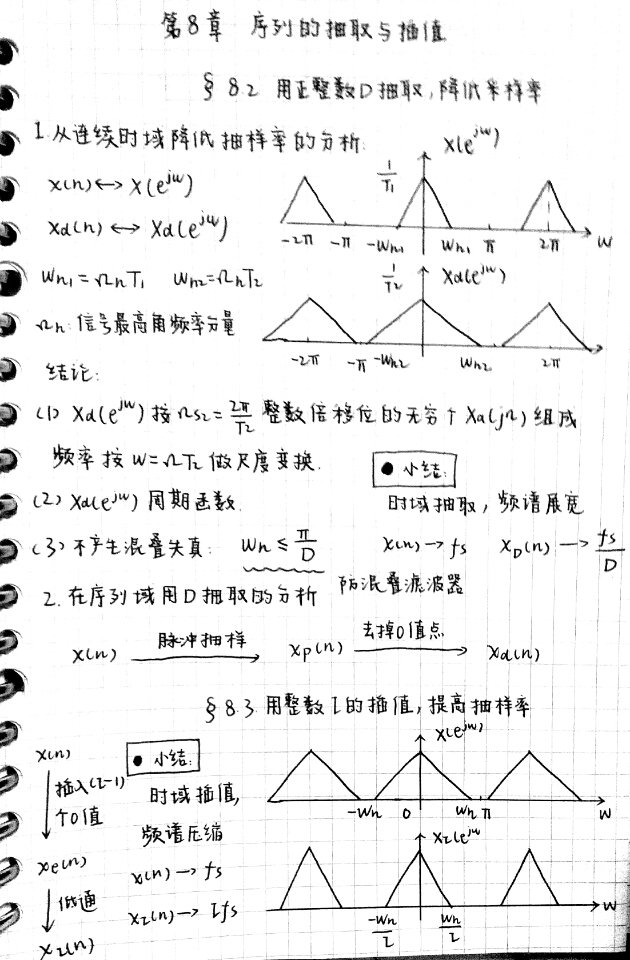 第8章 序列的抽取与插值
§8.2 用正整数D抽取,降低采样率
1.从连续时域降低抽样率的分析
x(n)↔X(e^jw)
xd(n)↔Xd(e^jw)
Wn1=ΩnT1 Wn2=ΩnT2
Ωn:信号最高角频率分量
1/T1 X(e^jw)
-2π -π -Wn1 Wn1 π 2π W
1/T2 Xd(e^jw)
-2π -π -Wn2 Wn2 2π
结论:
(1) Xd(e^jw)按Ωs2=2π/T2 整数倍移位的无穷个Xa(jΩ)组成
频率按W=ΩT2做尺度变换.
(2) Xd(e^jw)周期函数.
(3) 不产生混叠失真: Wn≤π/D
● 小结:
时域抽取,频谱展宽
x(n)→fs xD(n)→fs/D
防混叠滤波器
2.在序列域用D抽取的分析
x(n) 脉冲抽样 xp(n) 去掉0值点 xd(n)
§8.3 用整数I的插值,提高抽样率
x(n)
插入(I-1)
个0值
xe(n)
低通
xI(n)
● 小结:
时域插值,
频谱压缩
x(n)→fs
xI(n)→Ifs
X(e^jw)
-Wn 0 Wn π W
XI(e^jw
-Wn/I Wn/I W